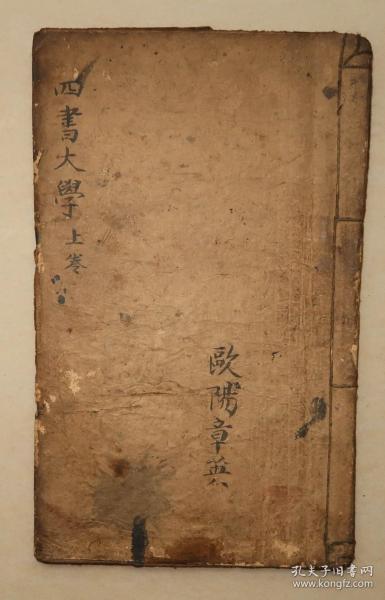 四書大學上卷
歐陽章
孔夫子旧书网
www.kongfz.com